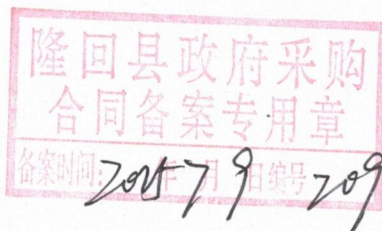 隆回县政府采购
合同备案专用章
备案时间：2025年7月9日编号209